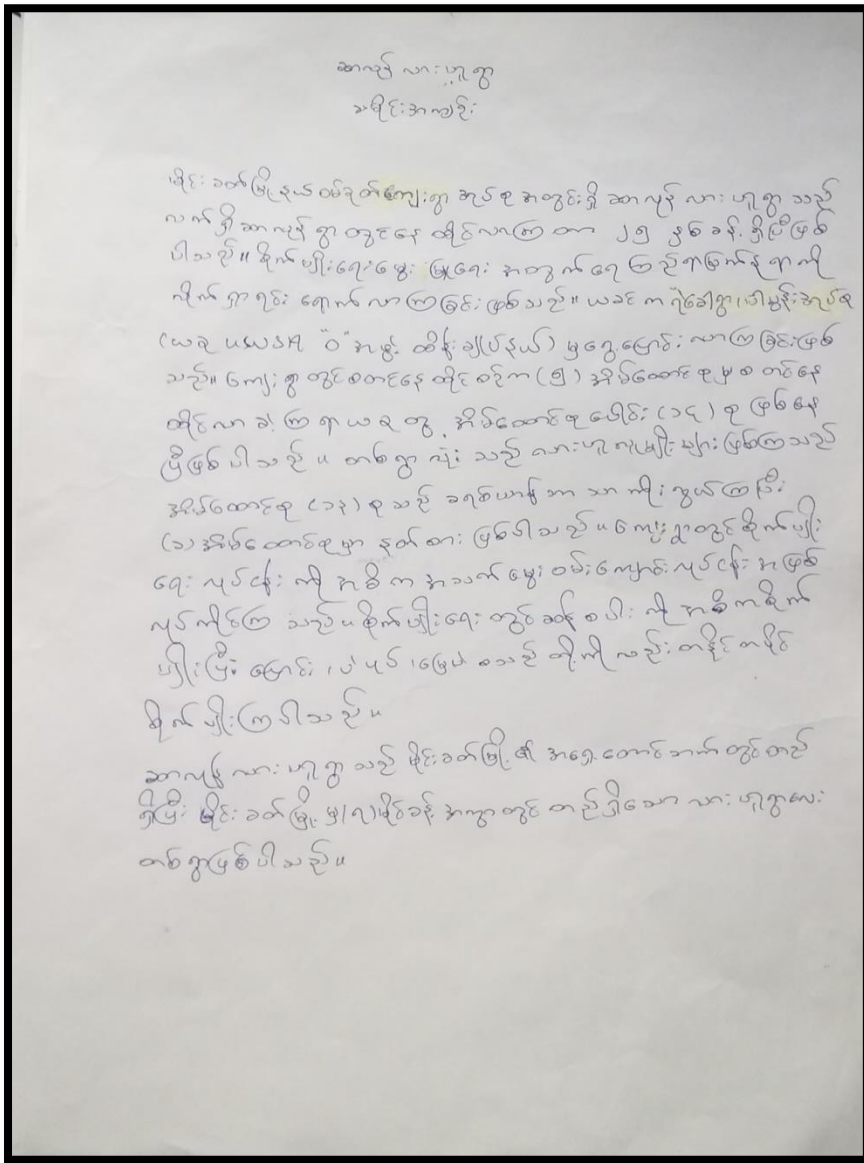 ဆာလုန် လားဟူရွာ
သမိုင်းအကျဉ်း
မိုင်းခတ်မြို့နယ် ဝမ်ဇုတ်ကျေးရွာ အုပ်စု အတွင်းရှိ ဆာလုန် လားဟူရွာ သည်
လက်ရှိ ဆာလုန် ရွာ တွင်နေ ထိုင်လာကြ တာ ၂၅ နှစ်ခန့် ရှိပြီဖြစ်
ပါသည်။ စိုက်ပျိုးရေး မွေး မြူရေး အတွက် ရေ ကြည်ရာမြက်နုရာကို
လိုက်ရှာရင်း ရောက်လာကြခြင်း ဖြစ်သည်။ ယခင်က အုပ်စု
(ယခု UWSA "ဝ" အဖွဲ့ ထိန်းချုပ်နယ်) မှ ရွှေ့ပြောင်း လာကြခြင်းဖြစ်
သည်။ ကျေးရွာတွင် စတင်နေထိုင်စဉ်က (၅) အိမ်ထောင်စုမှ စတင်နေ
ထိုင်လာ ခဲ့ကြရာ ယခုတွင် အိမ်ထောင်စုပေါင်း (၁၆) စု ဖြစ်နေ
ပြီဖြစ်ပါသည်။ တစ်ရွာလုံး သည် လားဟူလူမျိုးများ ဖြစ်ကြသည်
အိမ်ထောင်စု (၁၃) စုသည် ခရစ်ယာန်ဘာသာကိုးကွယ်ကြပြီး
(၁) အိမ်ထောင်စုမှာ နတ်စား ဖြစ်ပါသည်။ ကျေးရွာတွင် စိုက်ပျိုး
ရေး လုပ်ငန်း ကို အဓိက အသက်မွေး ဝမ်းကျောင်းလုပ်ငန်း အဖြစ်
လုပ်ကိုင်ကြ သည်။ စိုက်ပျိုးရေး တွင် ဆန်စပါး ကို အဓိကစိုက်
ပျိုးပြီး ပြောင်း၊ ပဲပုပ်၊ မြေပဲ စသည် တို့ကိုလည်း တနိုင်တပိုင်
စိုက်ပျိုးကြပါသည်။
ဆာလုန် လားဟူရွာ သည် မိုင်းခတ်မြို့၏ အရှေ့တောင်ဘက်တွင်တည်
ရှိပြီး မိုင်းခတ်မြို့မှ (၇) မိုင်ခန့် အကွာတွင် တည်ရှိသော လားဟူရွာလေး
တစ်ရွာဖြစ်ပါသည်။